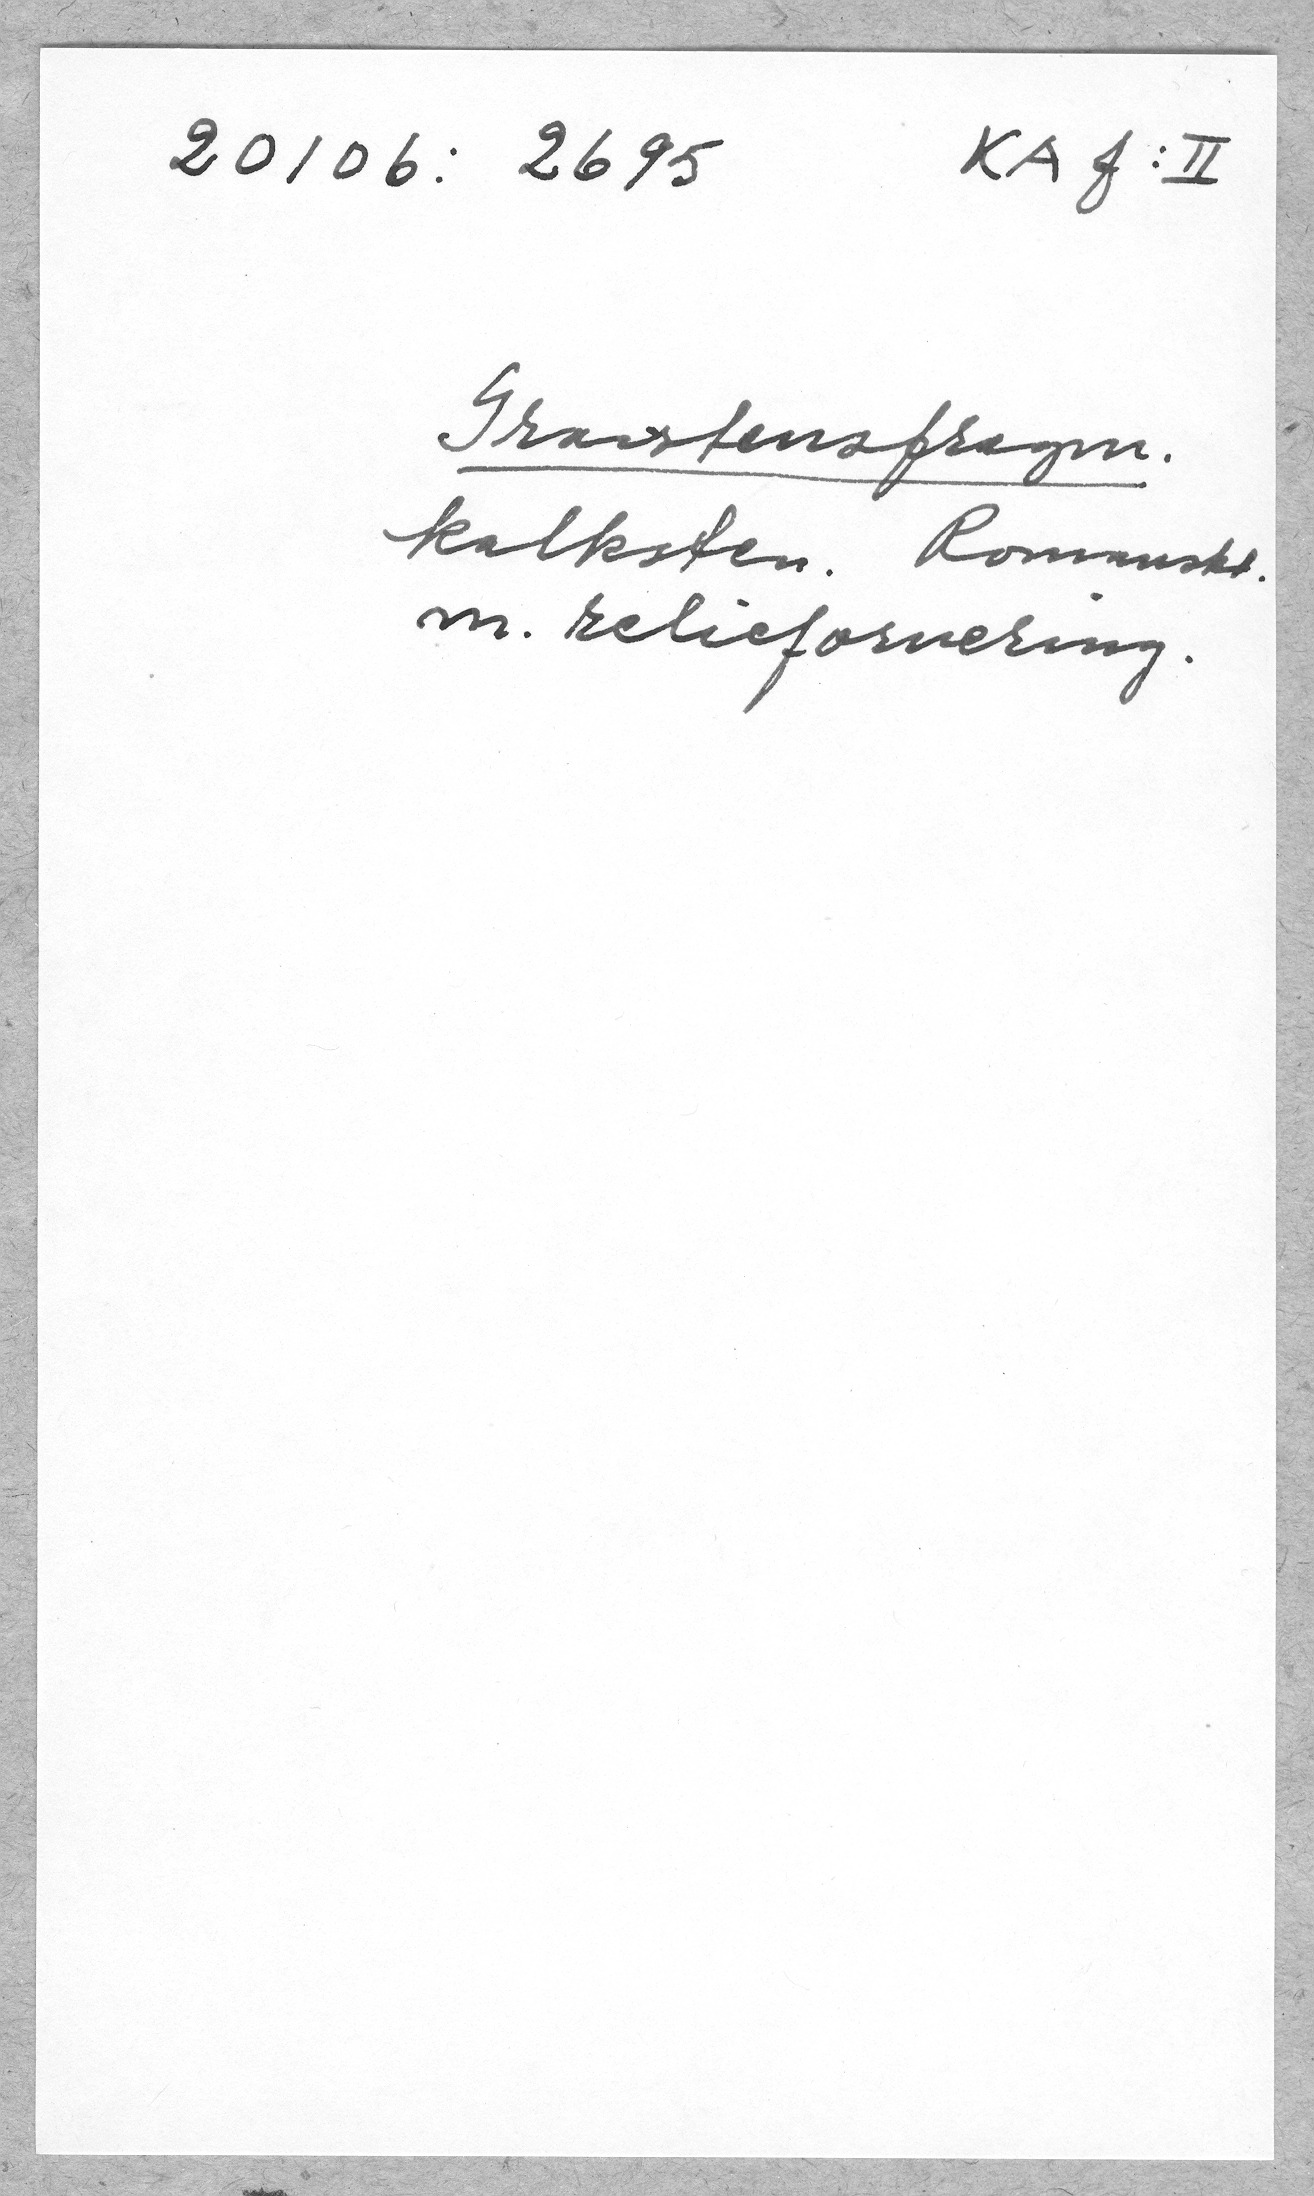 20106: 2695 KA f:II
Gravstensfragm.
kalksten. Romanskt.
m. reliefornering.